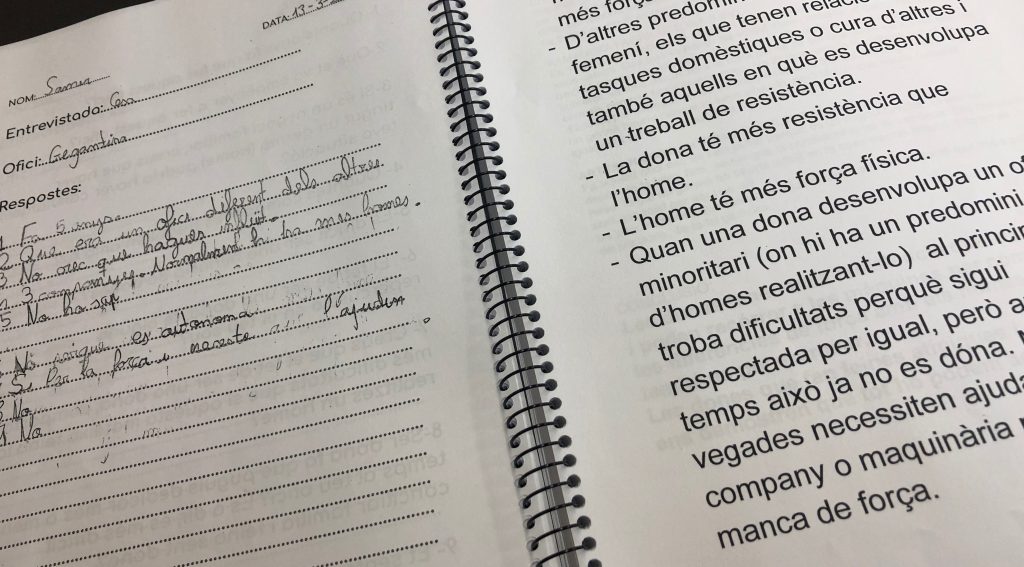 DATA: 13-3-
NOM: Samer
Entrevistada:
Ofici: Gegantina
Respostes:
Fa 5 anys.
2 Que era un ofici diferent dels altres
3 No crec que hagues influit.
3 companyes. Normalment hi ha mes homes.
5 No ho sap
No perque es autonoma
Si. Per la força i necesita que l'ajudin.
No
No
més força
- D'altres predomin
femení, els que tenen relació
tasques domèstiques o cura d'altres i
també aquells en què es desenvolupa
un treball de resistència.
- La dona té més resistència que
l'home.
- L'home té més força física.
- Quan una dona desenvolupa un of
minoritari (on hi ha un predomini
d'homes realitzant-lo) al princi
troba dificultats perquè sigui
respectada per igual, però a
temps això ja no es dóna.
vegades necessiten ajuda
company o maquinària
manca de força.